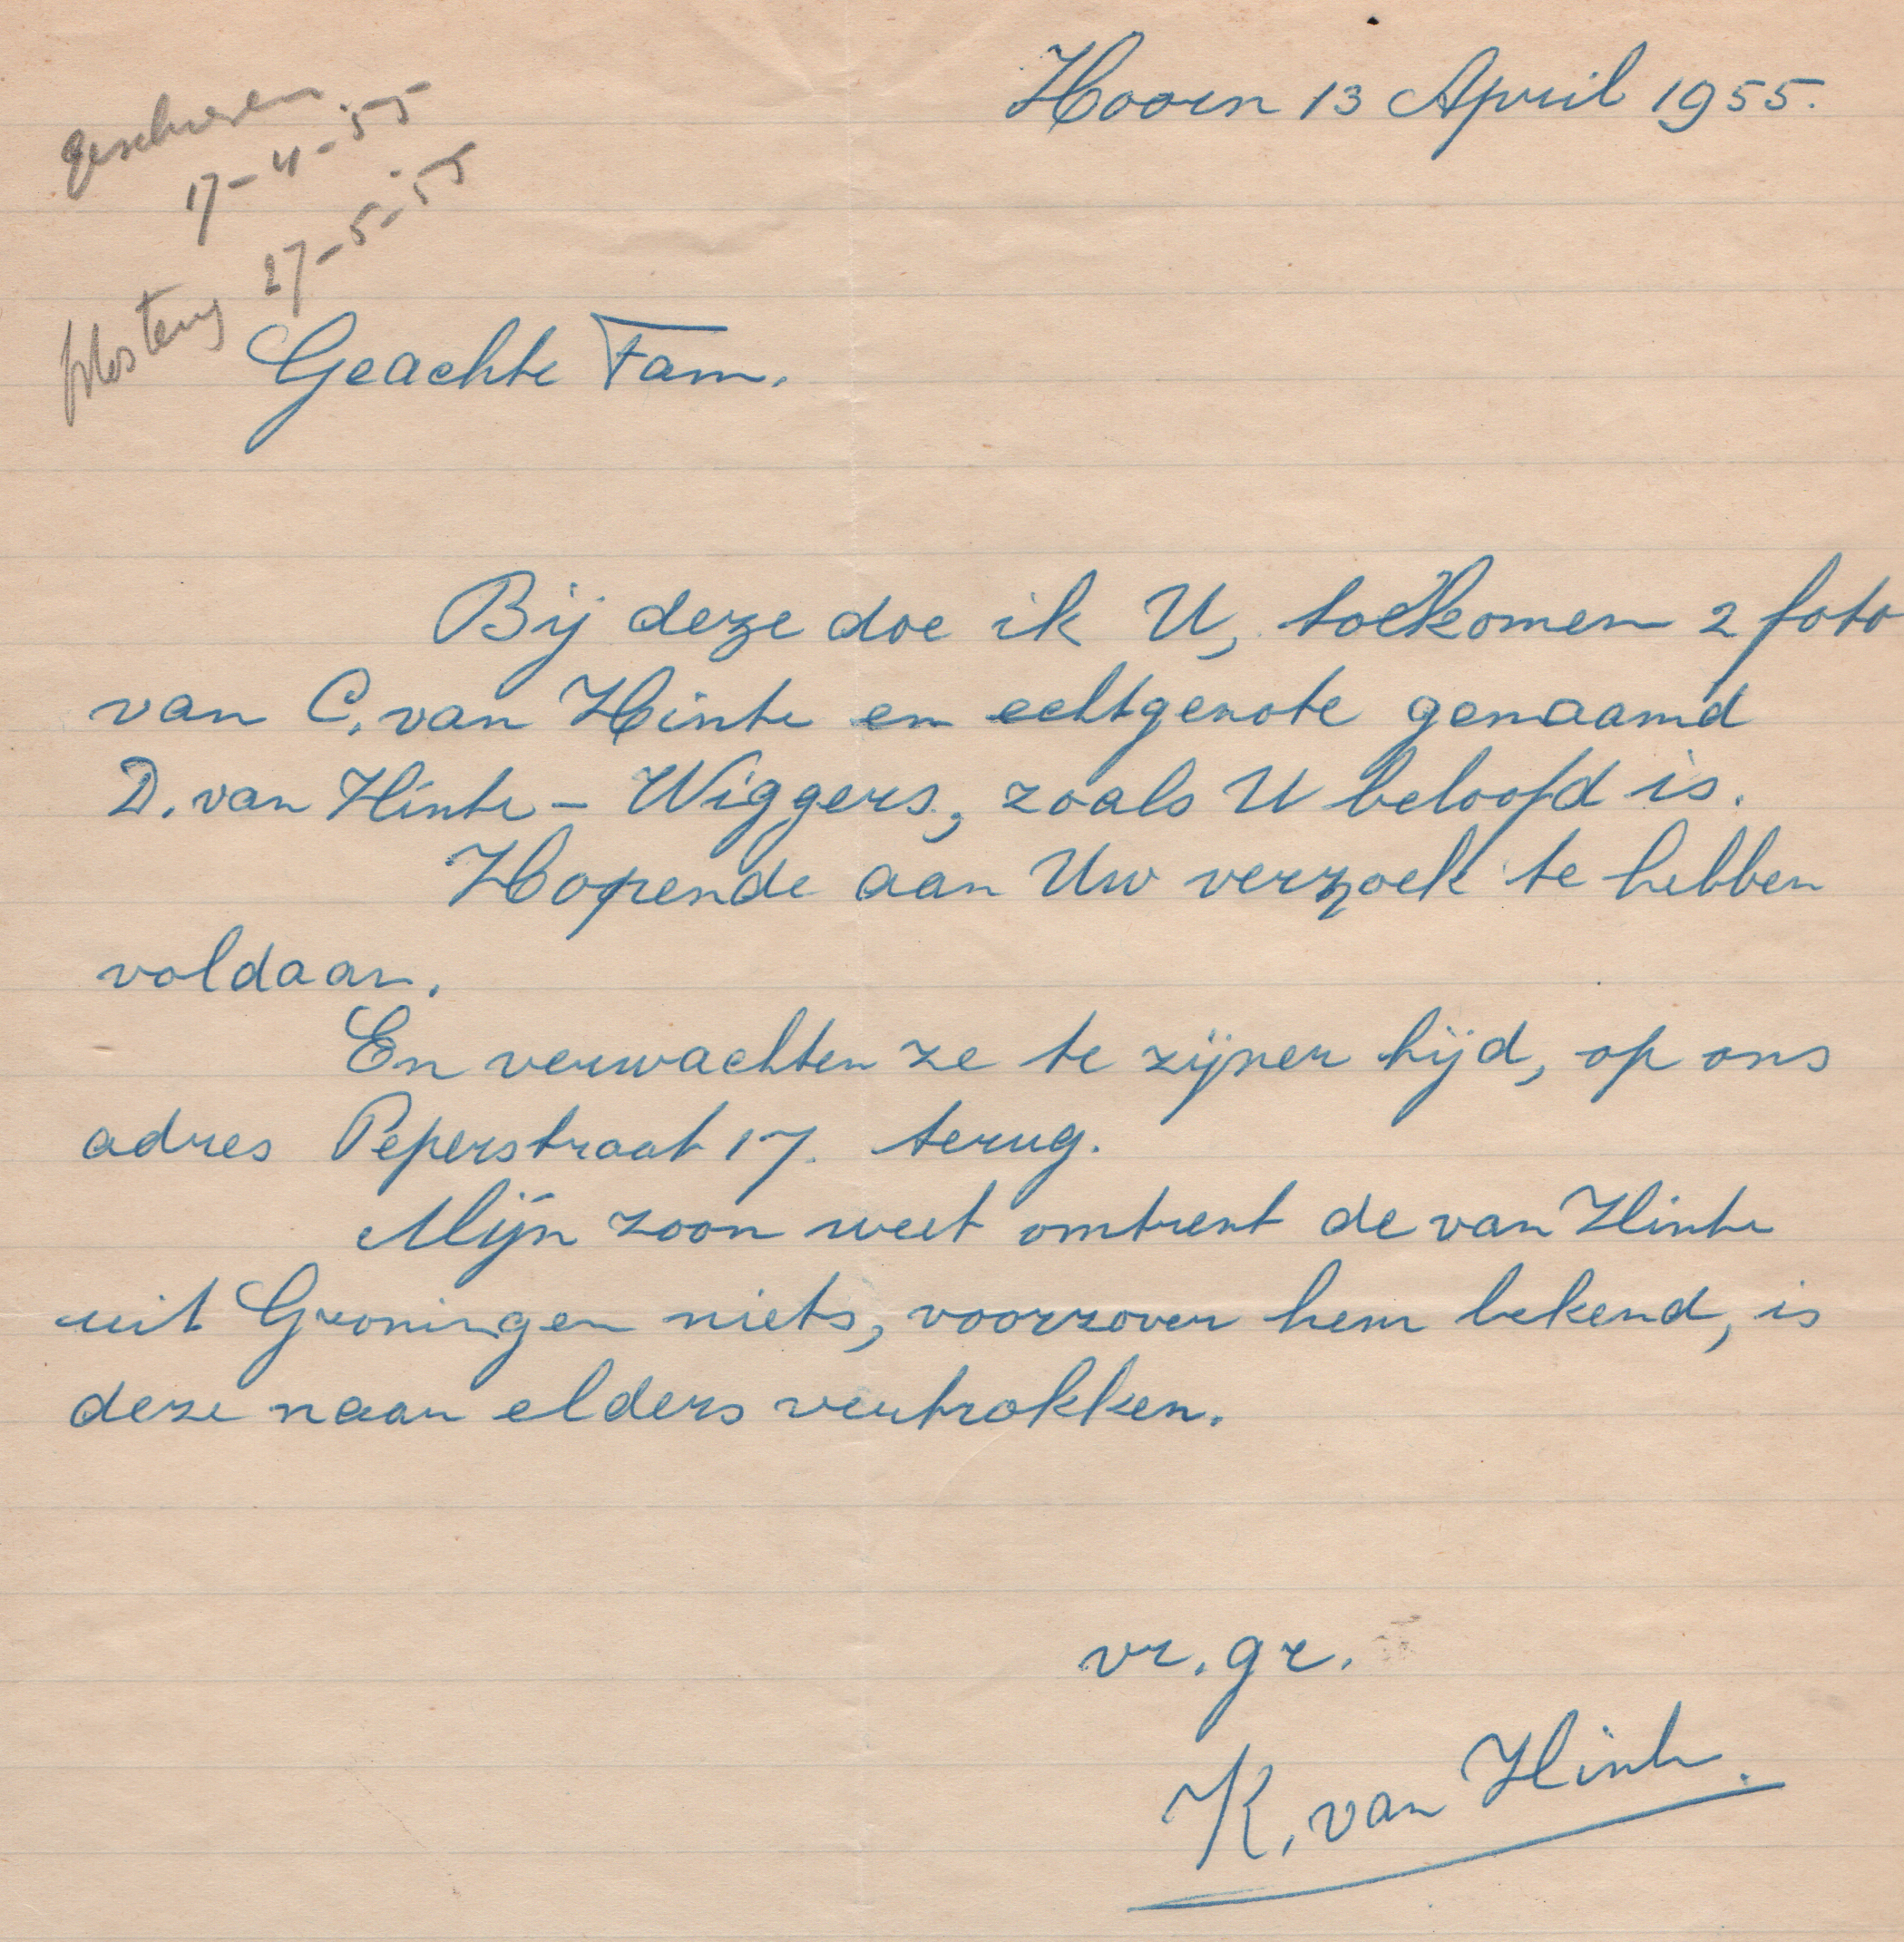 Hoorn 13 April 1955.
geschreven
17-4-55
fotos terug 27-5-55
Geachte Fam.
Bij deze doe ik U, toekomen 2 foto
van C. van Hinte en echtgenote genaamd
D. van Hinte - Wiggers, zoals U beloofd is.
Hopende aan Uw verzoek te hebben
voldaan.
En verwachten ze te zijner tijd, op ons
adres Peperstraat 17. terug.
Mijn zoon weet omtrent de van Hinte
uit Groningen niets, voorzover hem bekend, is
deze naar elders vertrokken.
vr. gr.
K. van Hinte.